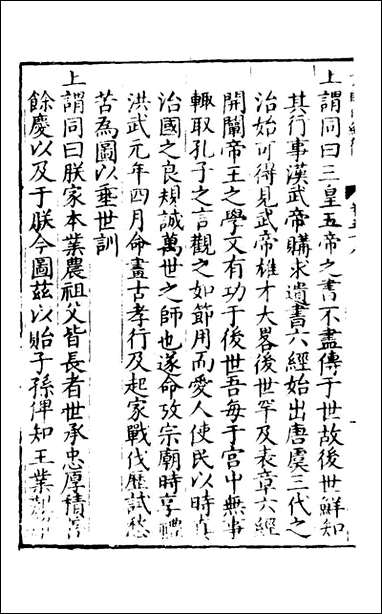 上謂同曰三皇五帝之書不盡傳于世故後世鮮知
其行事漢武帝購求遺書六經始出唐虞三代之
治始可得見武帝雄才大畧後世罕及表章六經
開闡帝王之學又有功于後世吾每于宮中無事
輙取孔子之言觀之如節用而愛人使民以時真
治國之良規誠萬世之師也遂命攷宗廟時享禮
洪武元年四月命畫古孝行及起家戰伐歷試愁
苦為圖以垂世訓
上謂同曰朕家本業農祖父皆長者世承忠厚積善
餘慶以及于朕今圖茲以貽子孫俾知王業